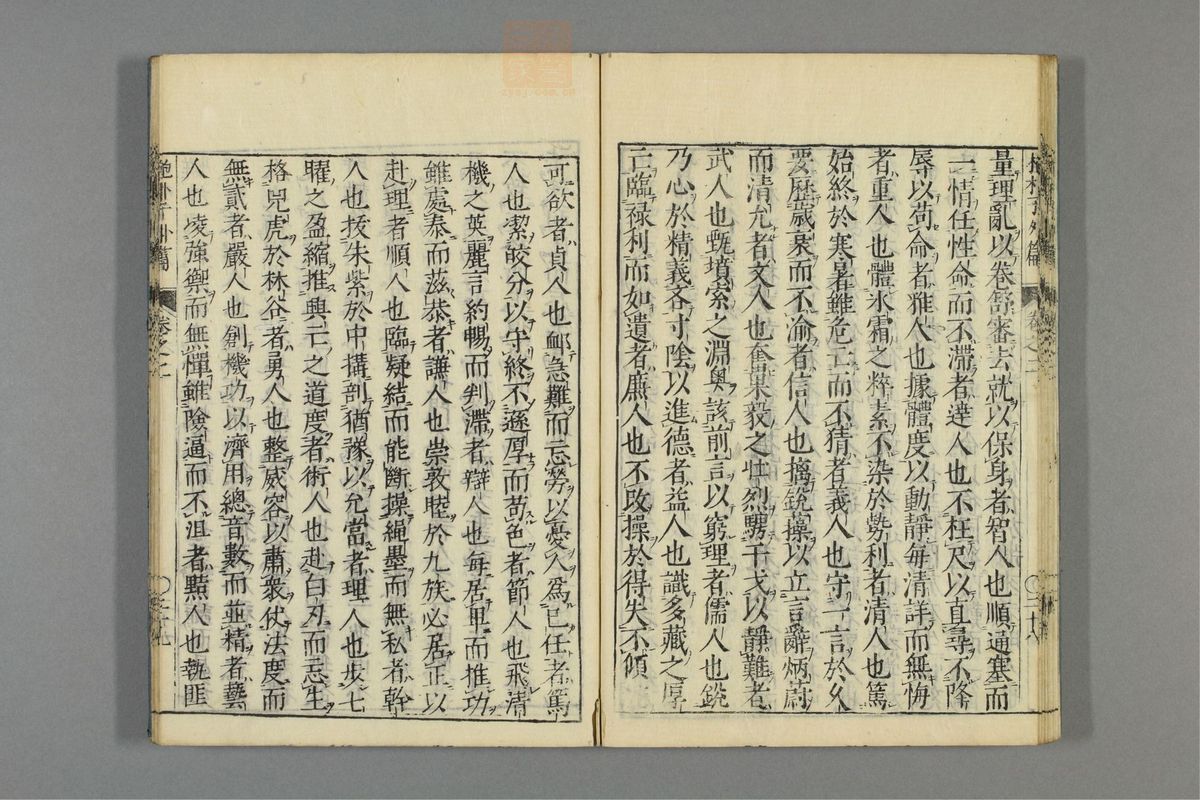 量理亂以卷舒審去就以保身者智人也順通塞而
一情任性命而不滯者達人也不枉尺以直尋不降
辱以苟命者雅人也據體度以動靜每清詳而無悔
者重人也體冰霜之粹素不染於勢利者清人也篤
始終於寒暑雖危亡而不猜者義人也守一言於久
要歷歲衰而不渝者信人也摛銳藻以立言辭炳蔚
而清允者文人也奮果毅之壯烈騁干戈以靜難者
武人也甄墳索之淵奧該前言以窮理者儒人也銳
乃心於精義吝寸陰以進德者益人也識多藏之厚
亡臨祿利而如遺者廉人也不改操於得失不傾
可欲者貞人也郵急難而忘勞以憂人爲己任者篤
人也潔皎分以守終不遜厚而苟免者節人也飛清
機之英麗言約暢而判滯者辯人也每居卑而推功
雖處泰而滋恭者謙人也崇敦睦於九族必居正以
赴理者順人也臨疑結而能斷操繩墨而無私者幹
人也拔朱紫於中搆剖猶豫以允當者理人也步七
曜之盈縮推興亡之道度者術人也赴白刃而忘生
格兕虎於林谷者勇人也整威容以肅衆仗法度而
無貳者嚴人也創機功以濟用總音數而並精者藝
人也凌強禦而無憚雖險逼而不沮者黠人也執匪
抱朴子外篇
卷之二
〇二十九